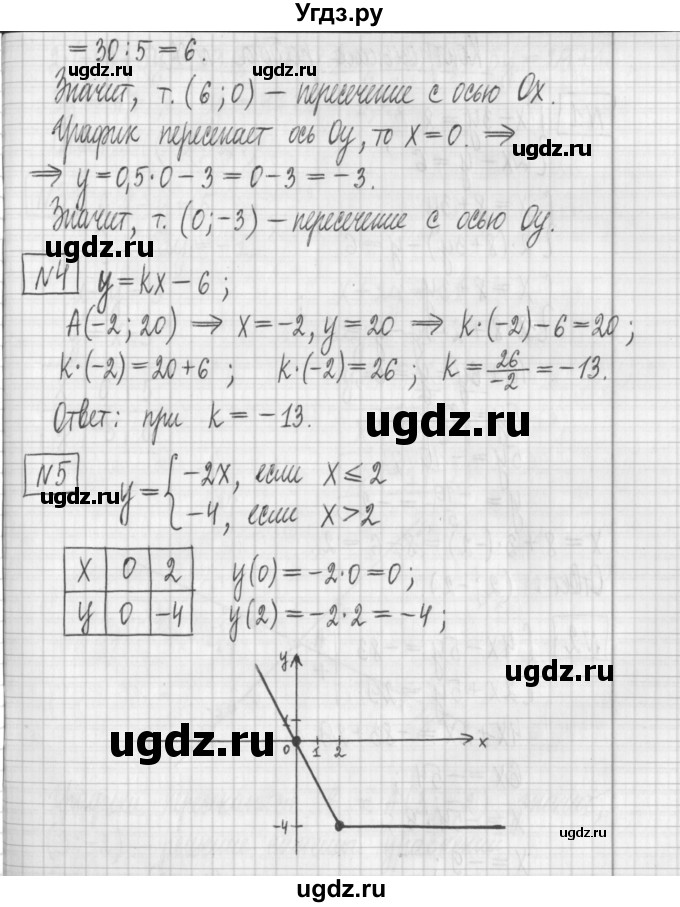 Угдз.ру
= 30 : 5 = 6.
Значит, т. (6 ; 0) – пересечение с осью Ох.
График пересекает ось Оу, то х = 0. ⇒
⇒ у = 0,5·0 – 3 = 0 – 3 = – 3.
Значит, т. (0; –3) – пересечение с осью Оу.
№4 y = kx – 6 ;
А(–2 ; 20) ⇒ х = –2, у = 20 ⇒ k·(–2) – 6 = 20 ;
k·(–2) = 20 + 6 ; k·(–2) = 26 ; k = 26/–2 = – 13.
Ответ: при k = – 13.
№5 y = { –2x, если x ⩽ 2
–4, если x > 2
x 0 2 y(0) = –2·0 = 0 ;
y 0 –4 y(2) = –2·2 = –4 ;
y
1
0 1 2 x
–4
ugdz.ru
ugdz.ru
ugdz.ru
ugdz.ru
ugdz.ru
ugdz.ru
ugdz.ru
ugdz.ru
ugdz.ru
ugdz.ru
ugdz.ru